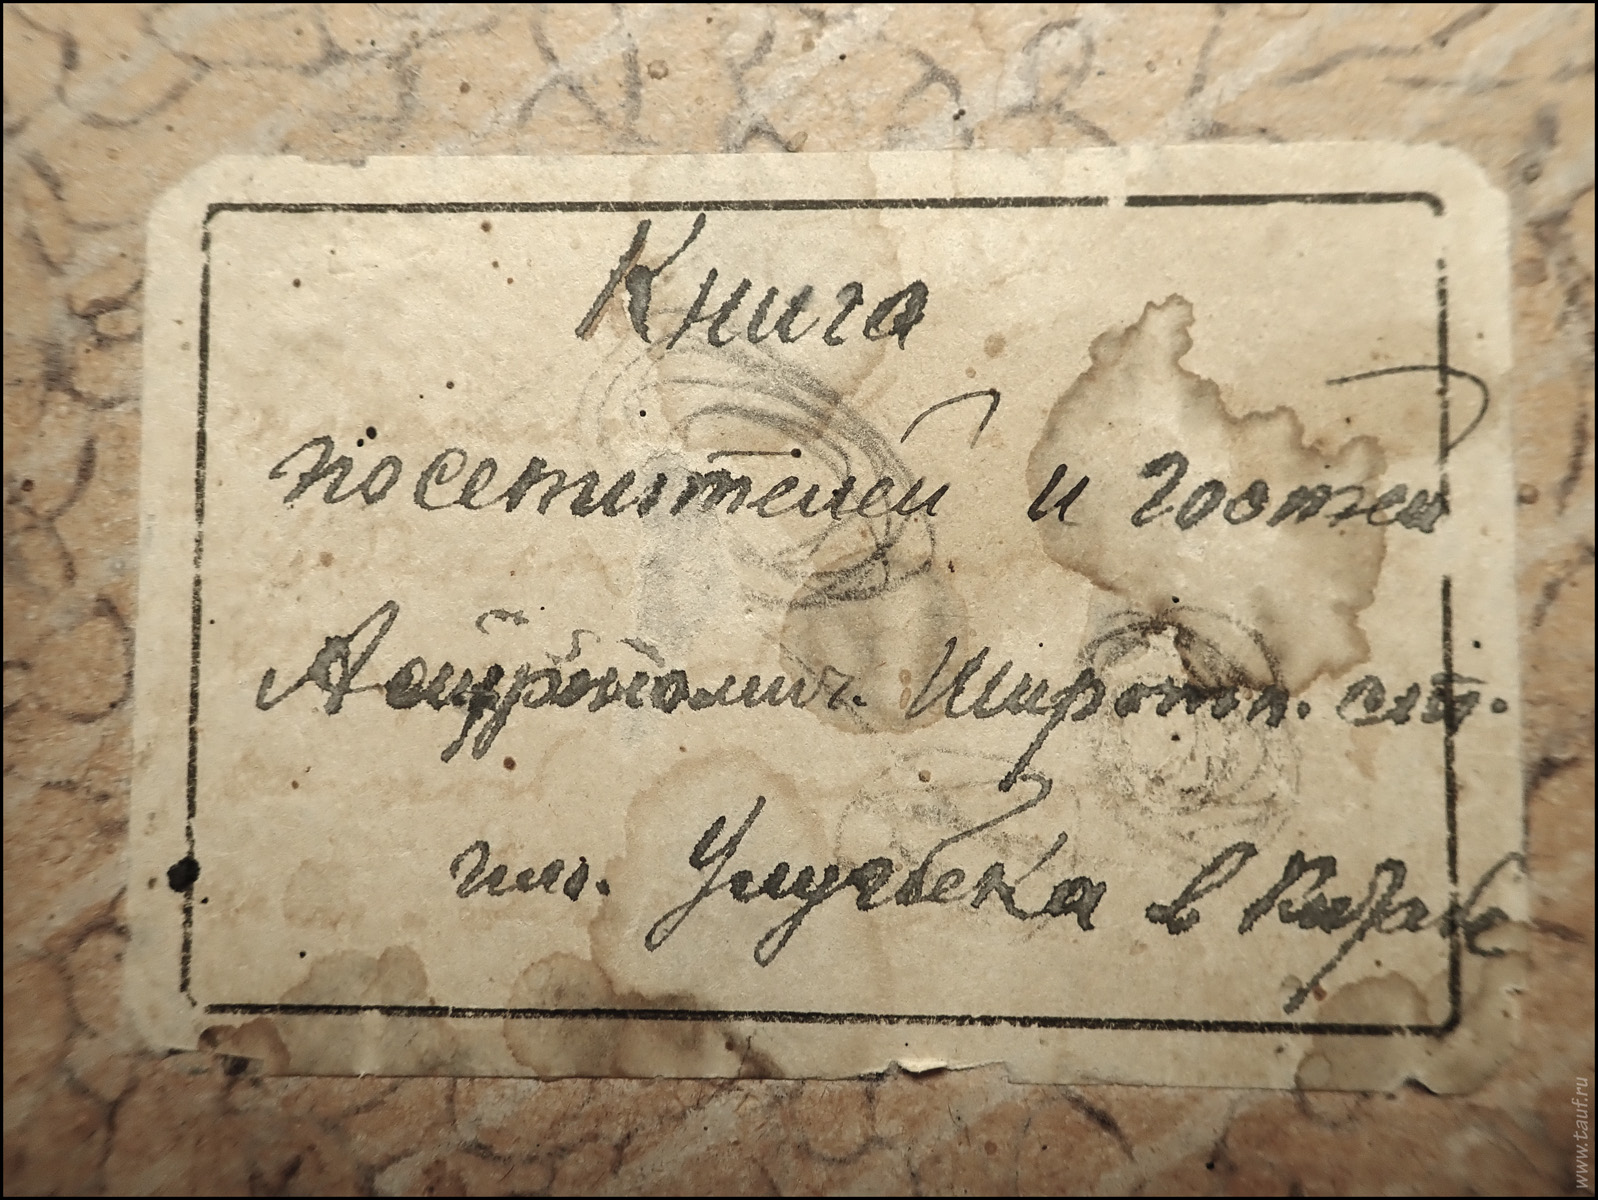 Книга
посетителей и гостей
Астрономич. Широтн. ст.
им. Улугбека в Китабе
www.tauf.ru